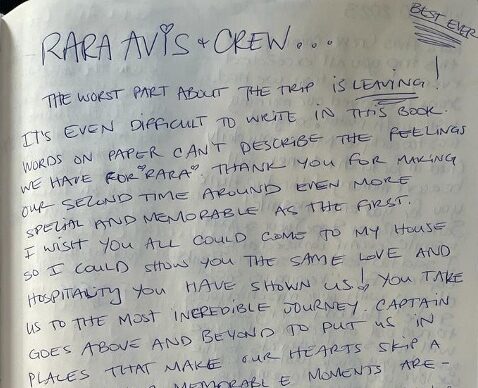 BEST EVER
RARA AVIS + CREW...
THE WORST PART ABOUT THE TRIP IS LEAVING!
IT'S EVEN DIFFICULT TO WRITE IN THIS BOOK.
WORDS ON PAPER CAN'T DESCRIBE THE FEELINGS
WE HAVE FOR "RARA". THANK YOU FOR MAKING
OUR SECOND TIME AROUND EVEN MORE
SPECIAL AND MEMORABLE AS THE FIRST.
I WISH YOU ALL COULD COME TO MY HOUSE
SO I COULD SHOW YOU THE SAME LOVE AND
HOSPITALITY YOU HAVE SHOWN US! YOU TAKE
US TO THE MOST INCREDIBLE JOURNEY. CAPTAIN
GOES ABOVE AND BEYOND TO PUT US IN
PLACES THAT MAKE OUR HEARTS SKIP A
MEMORABLE MOMENTS ARE -